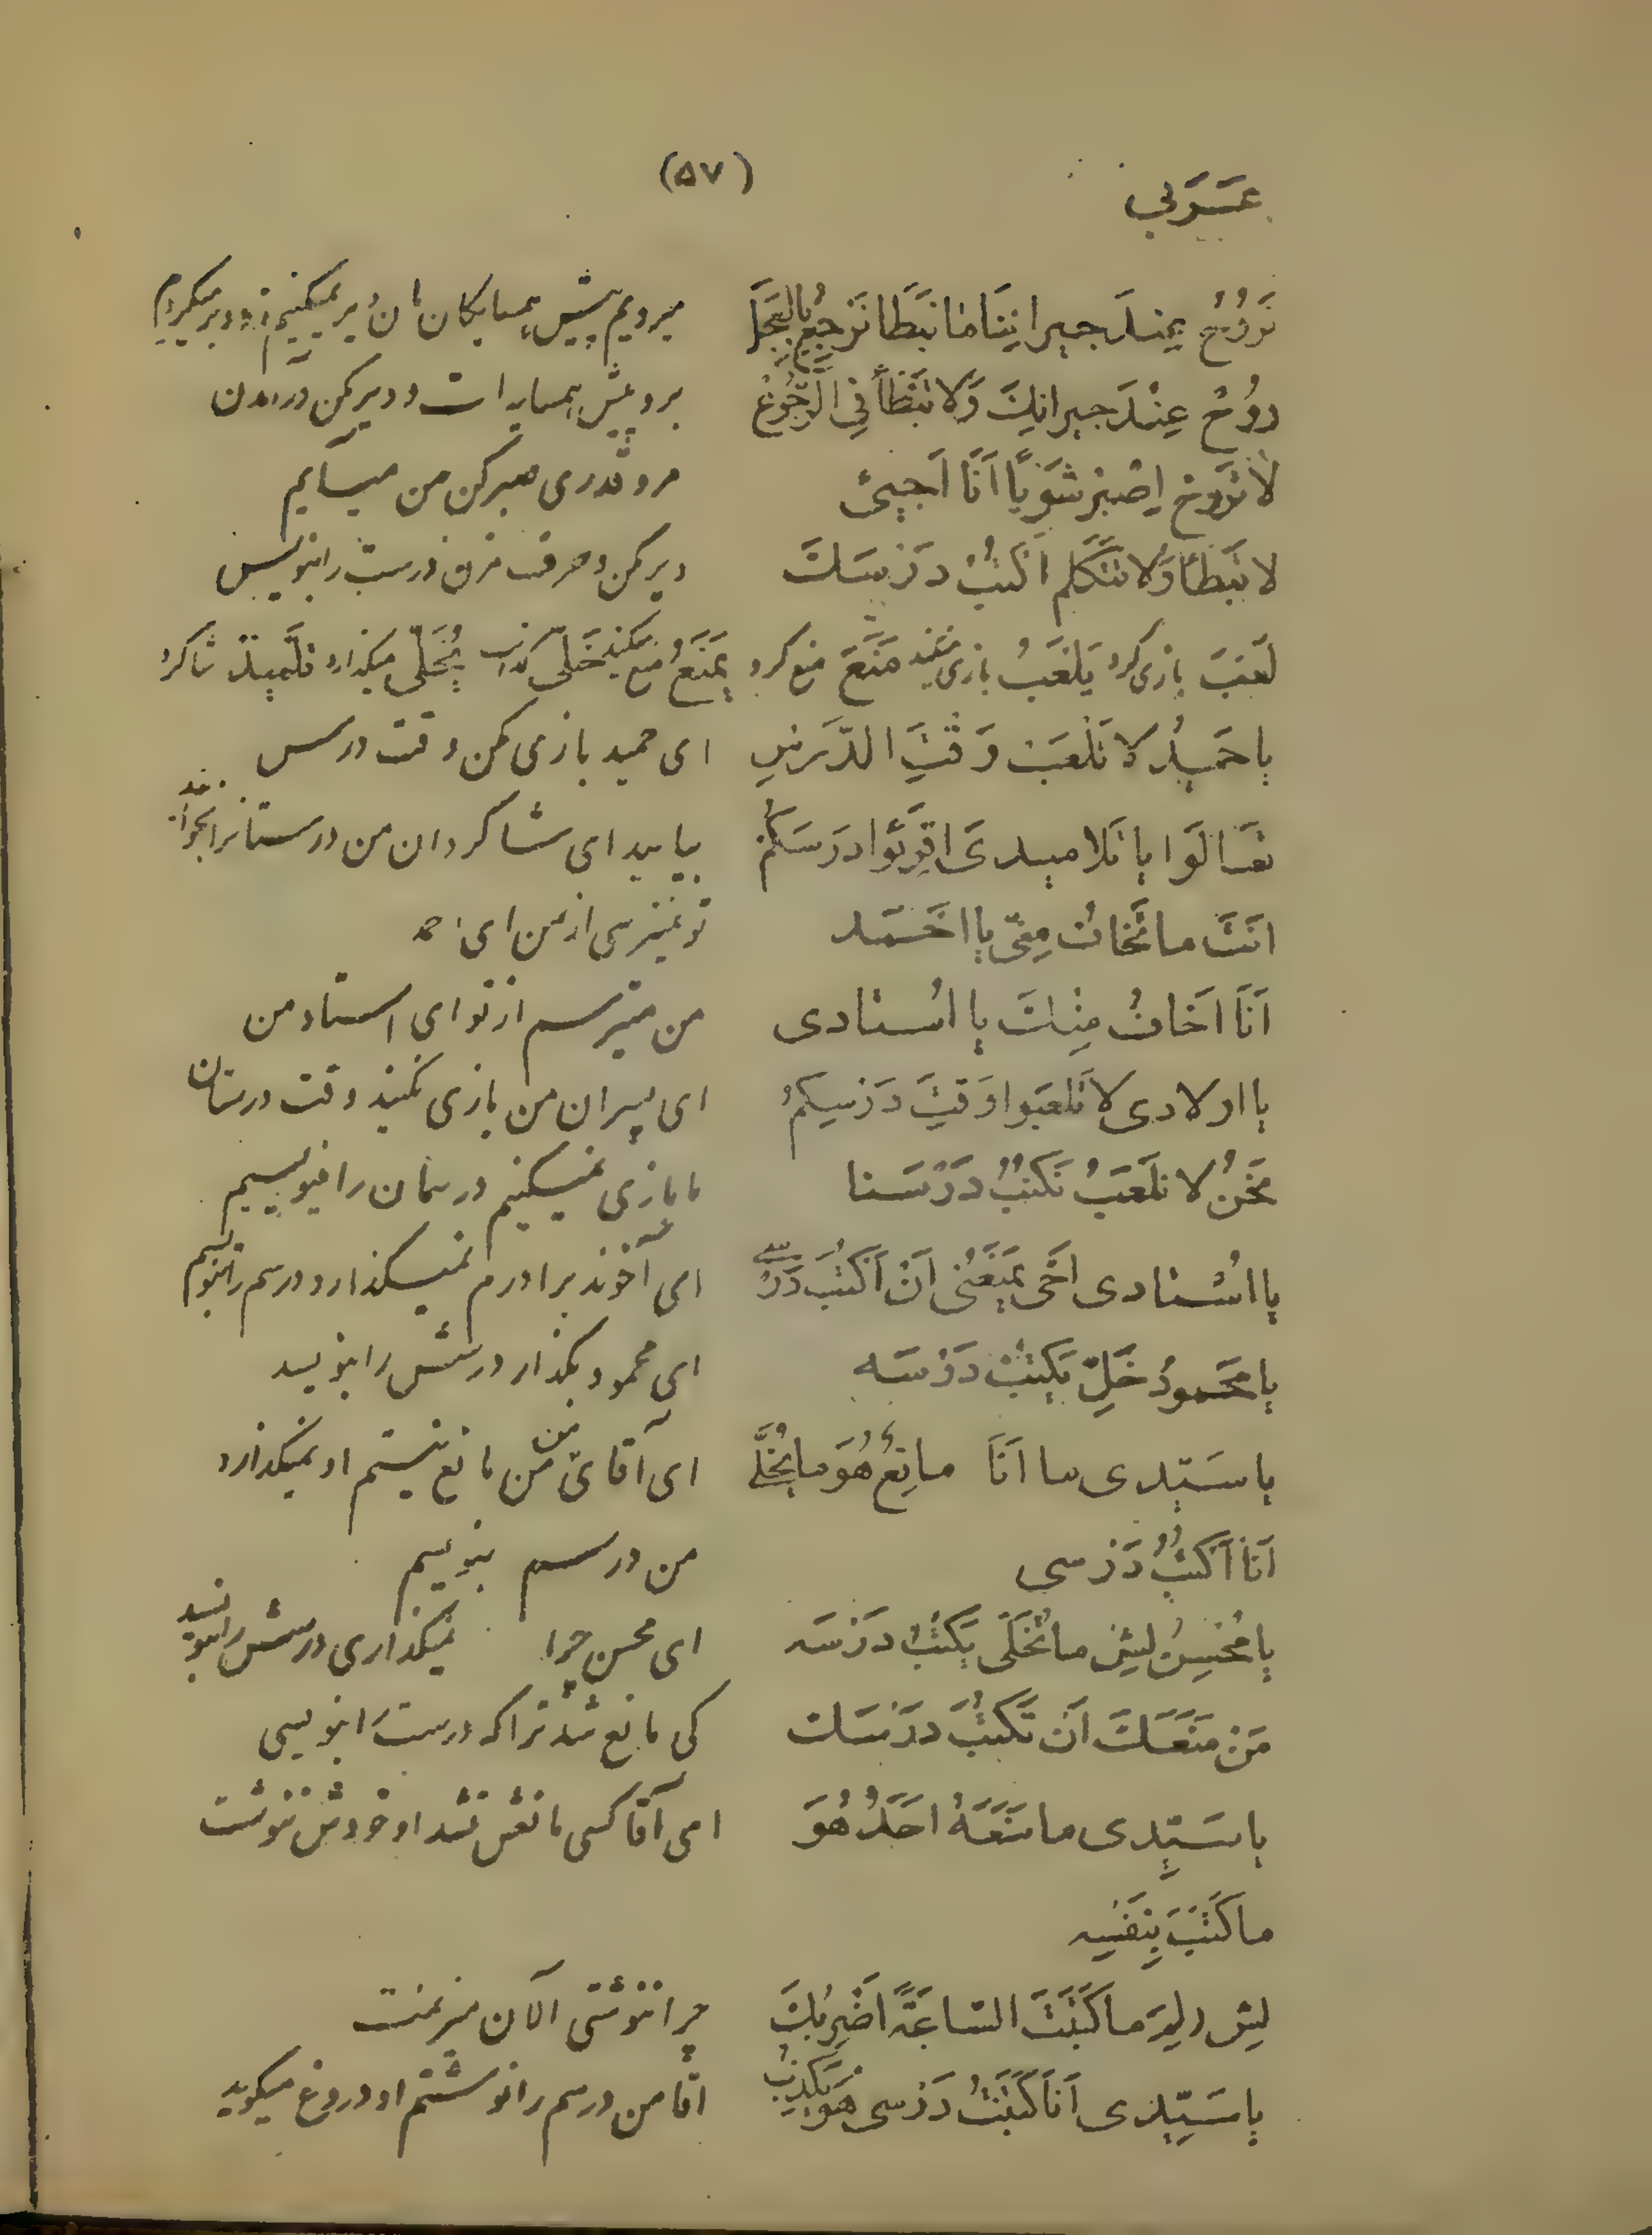 (۵۷)
عَرَبی
نَرُوُحُ عِندَ جیرانِنَا مٰا نَبَطَا نَرجِعُ بِالعَجَلِ میرویم پیش همسایگان مان دیر نمیکنیم زود برمیگردیم
روُحْ عِنْدَ جیرانِكَ وَلا تَبَطَأ فِی الرُّجُوعْ برو پیش همسایه ات و دیر مکن در آمدن
لٰا تَروح اِصْبِر شَوَیّاً اَنَا اَجیئُ مرو قدری صبر کن من میآیم
لا تَبَطأ وَلا تَتَكَلَّم اُكتُبْ دَرْسَكَ دیر مکن و حرف مزن درست را بنویس
لَعَبَ بازی کرد یَلعَبُ بازی میکند مَنَعَ منع کرد یَمنَعُ منع میکند خَلّی گذاشت یُخَلّی میگذارد تلمیذ شاگرد
یا حَمیدُ لا تَلْعَبْ وَقْتَ الدَّرسِ ای حمید بازی مکن وقت درس
تَعالَوا یا تَلامیدی اقرَؤا دَرسَكُم بیایید ای شاگردان من درستانرا بخوانید
اَنتَ ما تَخافُ مِنّی یا احْمَد تو نمیترسی از من ای احمد
اَنَا اَخافُ مِنْكَ یا اُستادی من میترسم از تو ای استاد من
یا اولادی لا تَلعَبوا وَقتَ دَرْسِكُم ای پسران من بازی نکنید وقت درستان
نَحنُ لا نلَعَبُ نَكتُبُ دَرْسَنا ما بازی نمیکنیم درسمان را مینویسیم
یا اُسْتادی اَخی یَمنَعُنی اَنْ اَكتُبَ دَرْسی ای آخوند برادرم نمیگذارد درسم را بنویسم
یا محمودُ خَلِّ یَكتُبْ دَرْسَه ای محمود بگذار درسش را بنویسد
یا سَیّدی ما اَنَا مانِعُ هُوَ ما یُخَلّی ای آقای من من مانع نیستم او نمیگذارد
اَنَا اَكتُبُ دَرْسی من درسم بنویسم
یا مُحْسِنُ لیش ما تُخَلّی یَكتُبُ دَرْسَه ای محسن چرا نمیگذاری درسش را بنویسد
مَنْ مَنَعَكَ اَن تَكتُبَ دَرْسَك کی مانع شد تراکه درست را بنویسی
یا سَیّدی ما مَنَعَهُ احَدٌ هُوَ ای آقا کسی مانعش نشد او خودش ننوشت
ما كَتَبَ بِنَفسِه
لیش ولد ما كَتَبتَ السّاعَة اَضرِبُكَ چرا ننوشتی الآن میزنمت
یا سَیّدی اَنَا كَتَبتُ دَرْسی هُوَ یَكذِبُ آقا من درسم را نوشتم او دروغ میگوید